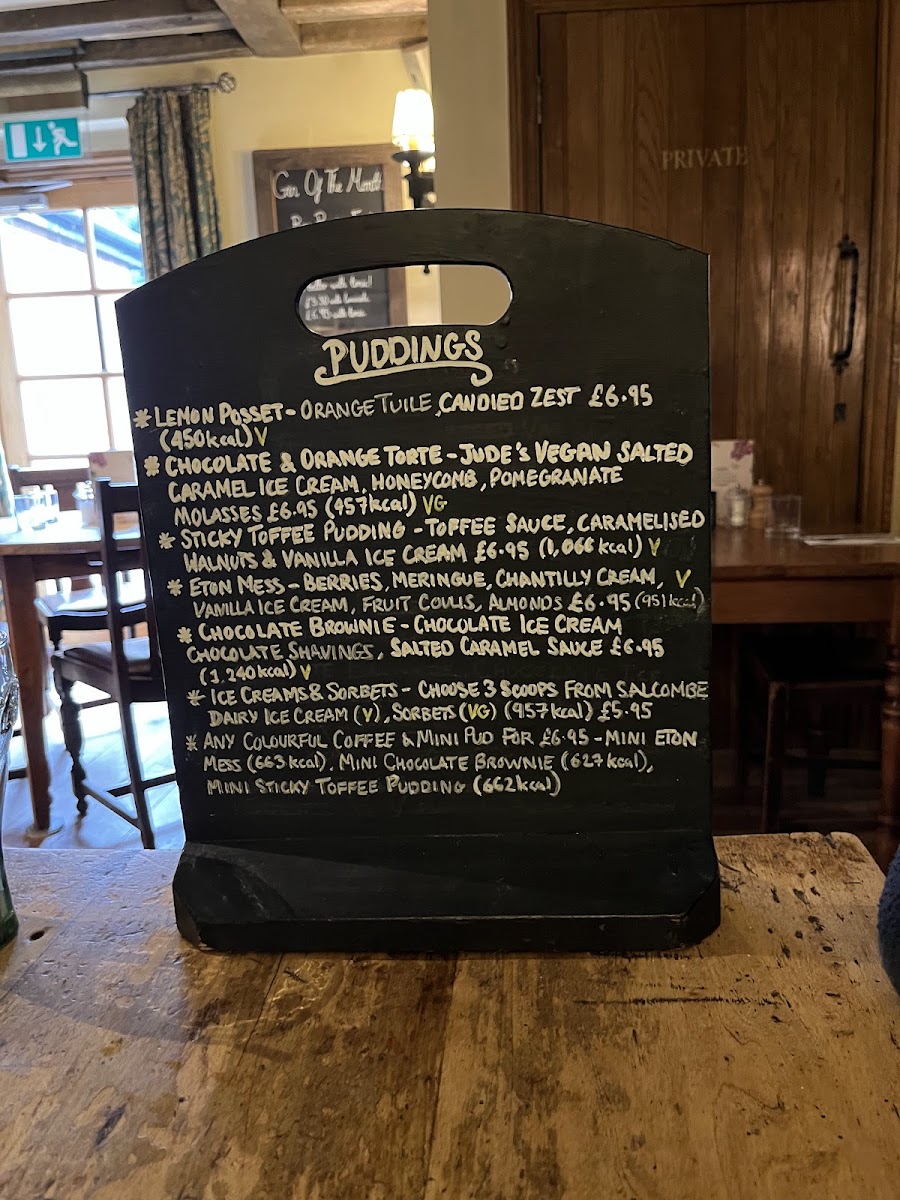 PRIVATE
Gin Of The Month
£3.50 with
£6.95 with
PUDDINGS
* LEMON POSSET - ORANGE TUILE, CANDIED ZEST £6.95
(450kcal) V
* CHOCOLATE & ORANGE TORTE - JUDE'S VEGAN SALTED
CARAMEL ICE CREAM, HONEYCOMB, POMEGRANATE
MOLASSES £6.95 (457kcal) VG
* STICKY TOFFEE PUDDING - TOFFEE SAUCE, CARAMELISED
WALNUTS & VANILLA ICE CREAM £6.95 (1,066kcal) V
* ETON MESS - BERRIES, MERINGUE, CHANTILLY CREAM, V
VANILLA ICE CREAM, FRUIT COULIS, ALMONDS £6.95 (951kcal)
* CHOCOLATE BROWNIE - CHOCOLATE ICE CREAM
CHOCOLATE SHAVINGS, SALTED CARAMEL SAUCE £6.95
(1,240kcal) V
* ICE CREAMS & SORBETS - CHOOSE 3 SCOOPS FROM SALCOMBE
DAIRY ICE CREAM (V), SORBETS (VG) (957kcal) £5.95
* ANY COLOURFUL COFFEE & MINI PUD FOR £6.95 - MINI ETON
MESS (663kcal), MINI CHOCOLATE BROWNIE (627kcal),
MINI STICKY TOFFEE PUDDING (662kcal)